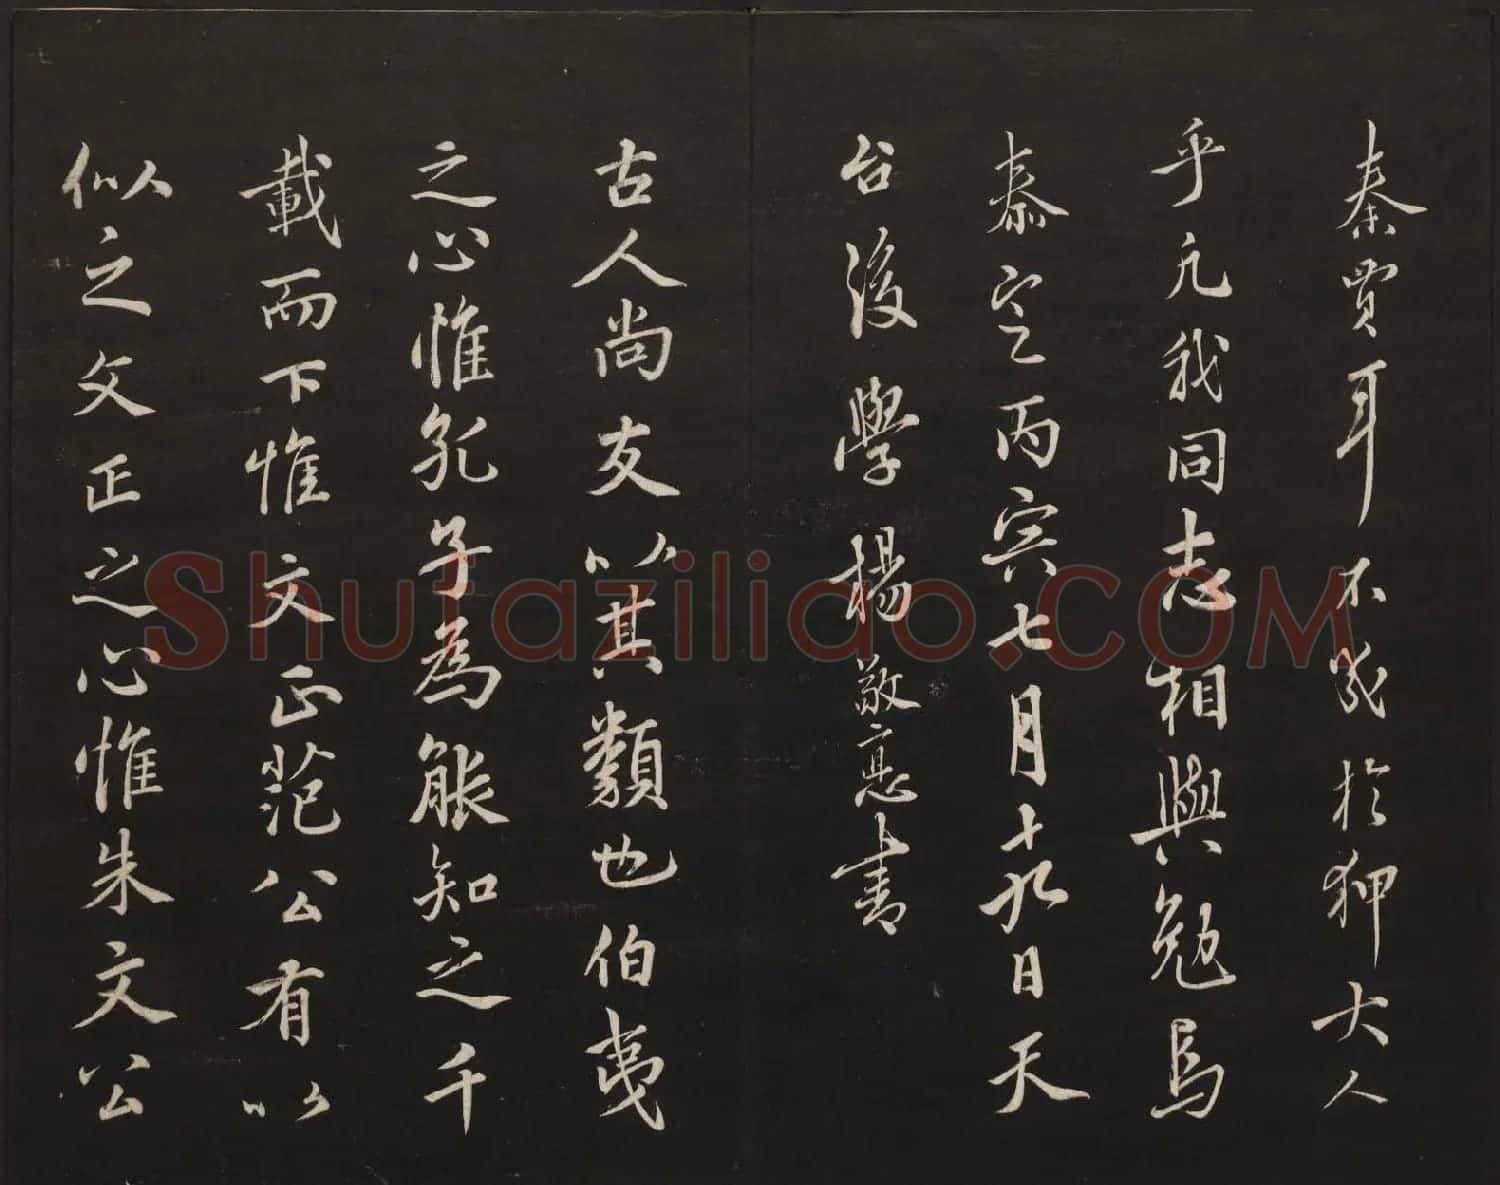 秦賈耳不幾於狎大人
乎凢我同志相與勉焉
泰定丙寅七月十九日天
台後學楊敬悳書
古人尚友以其類也伯夷
之心惟孔子為能知之千
載而下惟文正范公有以
似之文正之心惟朱文公
Shufazilido.COM